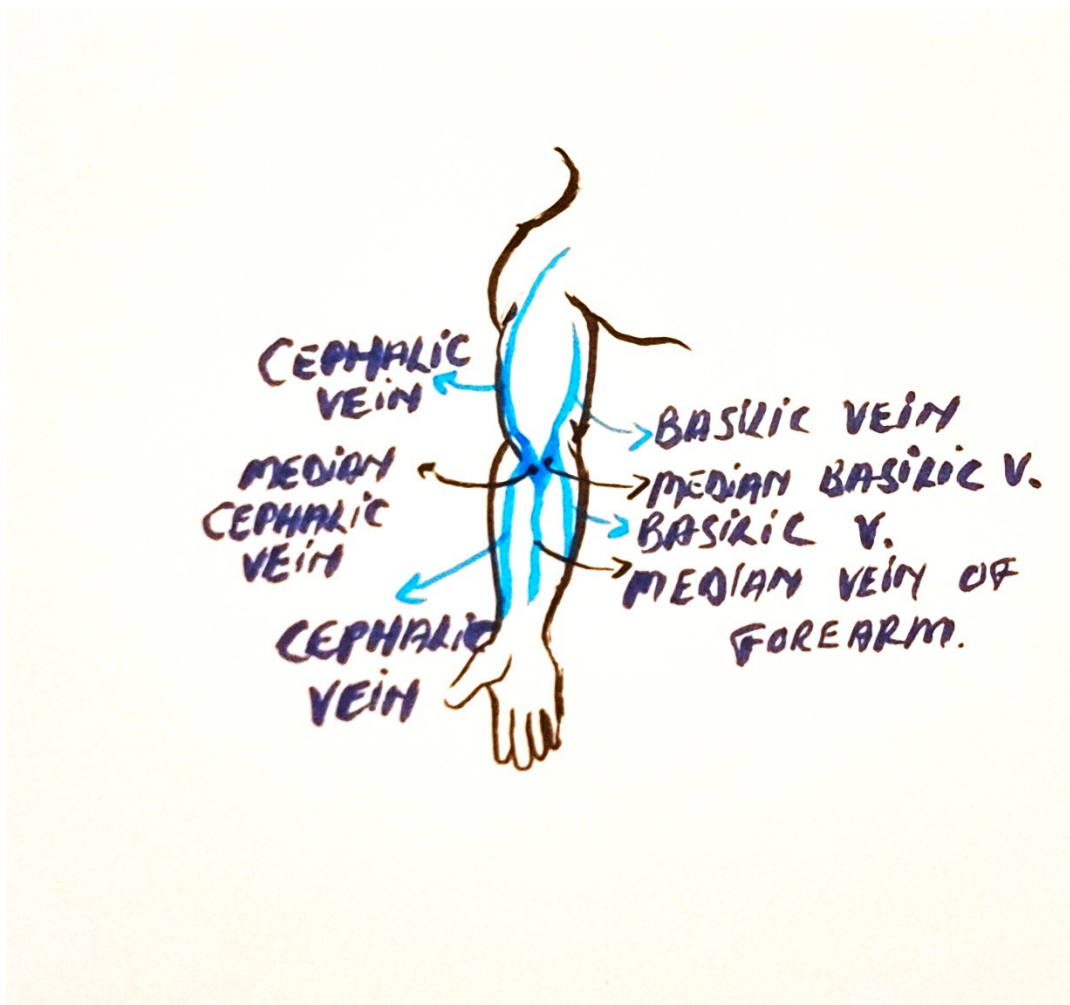 CEPHALIC
VEIN
MEDIAN
CEPHALIC
VEIN
CEPHALIC
VEIN
BASILIC VEIN
MEDIAN BASILIC V.
BASILIC V.
MEDIAN VEIN OF
FOREARM.